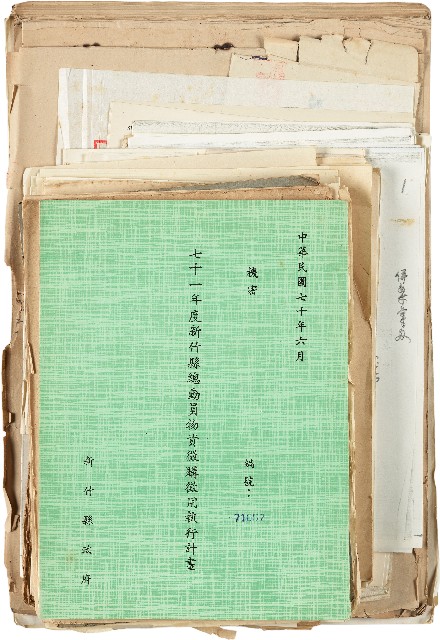 中華民國七十年六月
機密
編號：
71057
七十一年度新竹縣總動員物資徵購徵用執行計畫
新竹縣政府